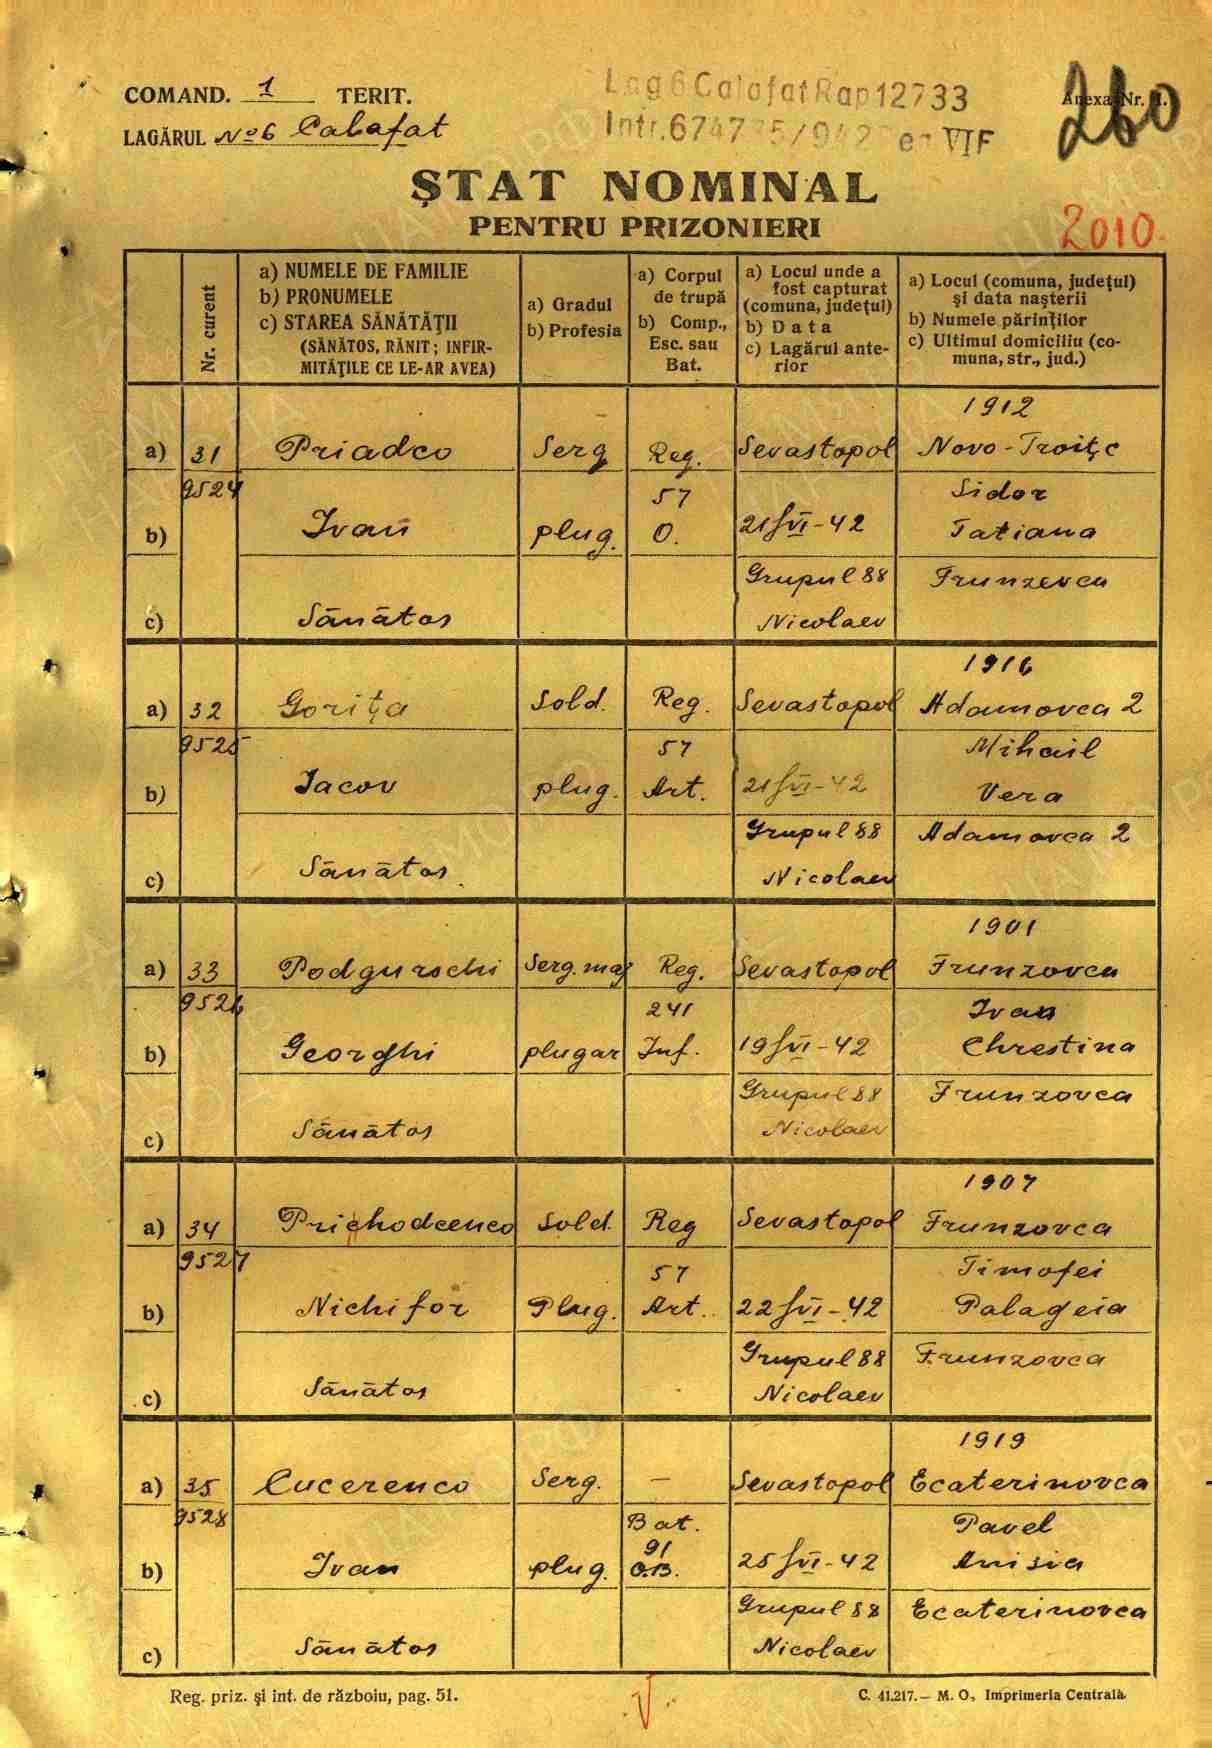 COMAND. 1 TERIT.
LAGĂRUL No 6 Calafat
Lag 6 Calafat Rap 12733
Intr. 6747 5/942 VIF
Anexa Nr. 1.
260
ŞTAT NOMINAL
PENTRU PRIZONIERI
2010.
Nr. curent
a) NUMELE DE FAMILIE
b) PRONUMELE
c) STAREA SĂNĂTĂŢII
(SĂNĂTOS, RĂNIT; INFIR-
MITĂŢILE CE LE-AR AVEA)
a) Gradul
b) Profesia
a) Corpul
de trupă
b) Comp.,
Esc. sau
Bat.
a) Locul unde a
fost capturat
(comuna, judeţul)
b) Data
c) Lagărul ante-
rior
a) Locul (comuna, judeţul)
şi data naşterii
b) Numele părinţilor
c) Ultimul domiciliu (co-
muna, str., jud.)
1912
a) 31 Priadco Serg Reg. Sevastopol Novo-Troiţc
9524 57 Sidor
b) Ivan plug. O. 21/VI-42 Tatiana
Grupul 88 Frunzevca
c) Sănătos Nicolaev
1916
a) 32 Goriţa Sold. Reg. Sevastopol Adamovca 2
9525 57 Mihail
b) Iacov plug. Art. 21/VI-42 Vera
Grupul 88 Adamovca 2
c) Sănătos. Nicolaev
1901
a) 33 Podgurschi Serg. maj Reg. Sevastopol Frunzovca
9526 241 Ivan
b) Georghi plugar Inf. 19/VI-42 Chrestina
Grupul 88 Frunzovca
c) Sănătos Nicolaev
1907
a) 34 Prichodcenco Sold. Reg Sevastopol Frunzovca
9527 57 Timofei
b) Nichifor Plug. Art. 22/VI-42 Palageia
Grupul 88 Frunzovca
c) Sănătos Nicolaev
1919
a) 35 Cucerenco Serg. — Sevastopol Ecaterinovca
9528 Bat. Pavel
91
b) Ivan plug. O.B. 25/VI-42 Anisia
Grupul 88 Ecaterinovca
c) Sănătos Nicolaev
Reg. priz. şi int. de războiu, pag. 51.
V
C. 41.217.— M. O., Imprimeria Centrală.